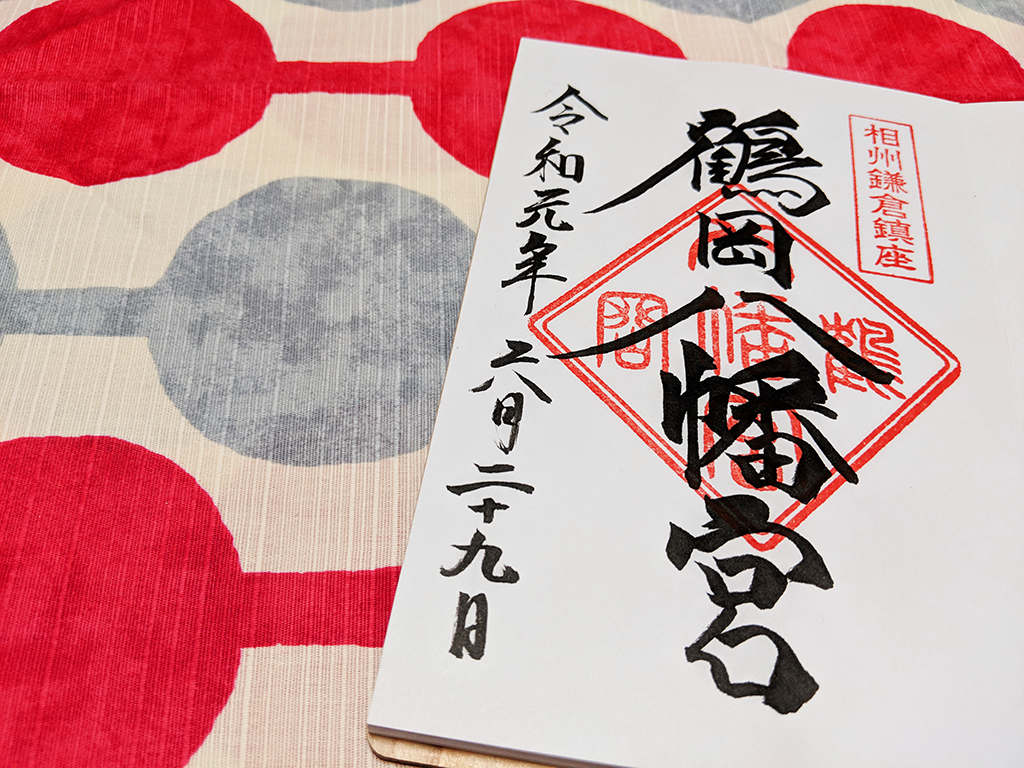 相州鎌倉鎮座
鶴岡八幡宮
令和元年六月二十九日